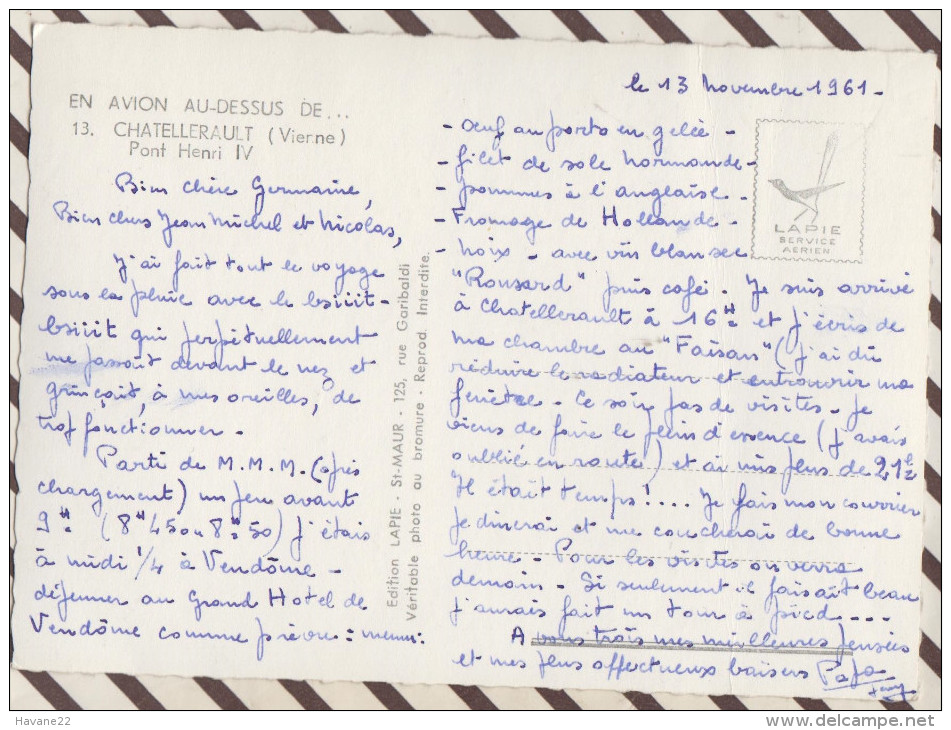 EN AVION AU-DESSUS DE...
13. CHATELLERAULT (Vienne)
Pont Henri IV
Bien chère Germaine,
Bien chers Jean Michel et Nicolas,
J'ai fait tout le voyage
sous la pluie avec le bsiiit-
bsiiit qui perpétuellement
me passait devant le nez et
grinçait, à mes oreilles, de
trop fonctionner -
Parti de M.M.M. (après
chargement) un peu avant
9H. (8H45 ou 8H50) j'étais
à midi 1/4 à Vendôme -
déjeuner au Grand Hotel de
Vendôme comme prévu : menu :
Edition LAPIE - St-MAUR - 125, rue Garibaldi
Véritable photo au bromure - Reprod. Interdite.
le 13 Novembre 1961 -
- oeuf au porto en gelée -
- filet de sole normande -
- pommes à l'anglaise -
- Fromage de Hollande -
- noix - avec vin blanc sec
"Ronsard" puis café. Je suis arrivé
à Chatellerault à 16H et j'écris de
ma chambre au "Faisan" (j'ai dû
réduire le radiateur et entrouvrir ma
fenêtre - Ce soir pas de visites - Je
viens de faire le plein d'essence (j'avais
oublié en route) et ai mis plus de 21 l
Il était temps!... Je fais mon courrier
je dinerai et me coucherai de bonne
heure - Pour les visites on verra
demain - Si seulement il faisait beau
j'aurais fait un tour à pied...
A vous trois mes meilleures pensées
et mes plus affectueux baisers Papa
LAPIE
SERVICE
AERIEN
Havane22
www.delcampe.net